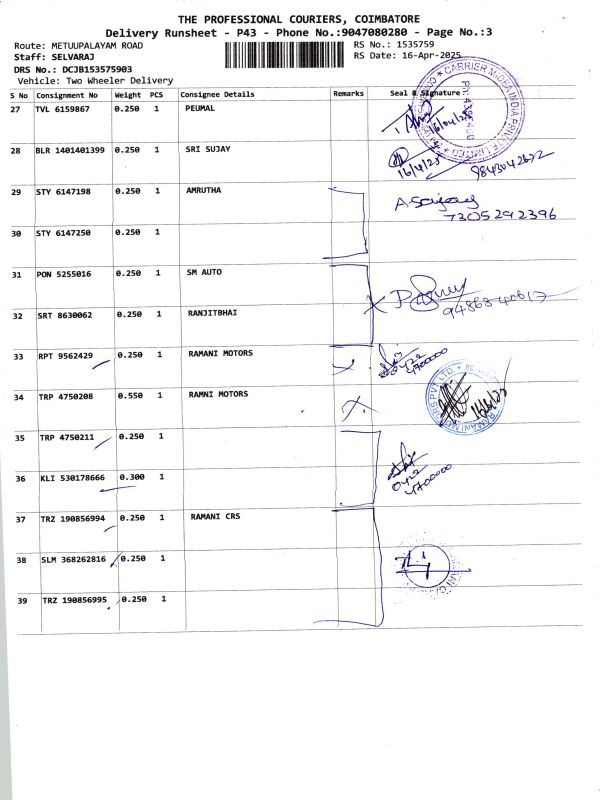 THE PROFESSIONAL COURIERS, COIMBATORE
Delivery Runsheet - P43 - Phone No.:9047080280 - Page No.:3
Route: METUUPALAYAM ROAD
RS No.: 1535759
Staff: SELVARAJ
RS Date: 16-Apr-2025
DRS No.: DCJB153575903
Vehicle: Two Wheeler Delivery
S No Consignment No Weight PCS Consignee Details Remarks Seal & Signature
27 TVL 6159867 0.250 1 PEUMAL
16/04/25
CARRIER MIDEA INDIA PRIVATE LIMITED
28 BLR 1401401399 0.250 1 SRI SUJAY
16/4/25 9843042632
29 STY 6147198 0.250 1 AMRUTHA
7305292396
30 STY 6147250 0.250 1
31 PON 5255016 0.250 1 SM AUTO
32 SRT 8630062 0.250 1 RANJITBHAI
33 RPT 9562429 0.250 1 RAMANI MOTORS
34 TRP 4750208 0.550 1 RAMNI MOTORS
RAMANI MOTORS PVT LTD
35 TRP 4750211 0.250 1
36 KLI 530178666 0.300 1
0422
4700000
37 TRZ 190856994 0.250 1 RAMANI CRS
38 SLM 368262816 0.250 1
39 TRZ 190856995 0.250 1